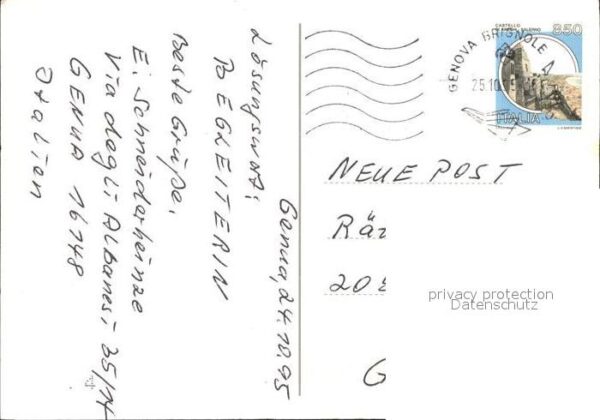 Genua, 24.10.95
Lösungswort:
BEGLEITERIN
Beste Grüße,
E. Schneiderheinze
Via degli Albanesi 35/14
GENUA 16148
Italien
GENOVA BRIGNOLE
25.10.
CASTELLO
850
ITALIA
NEUE POST
Räz
20
G
privacy protection
Datenschutz